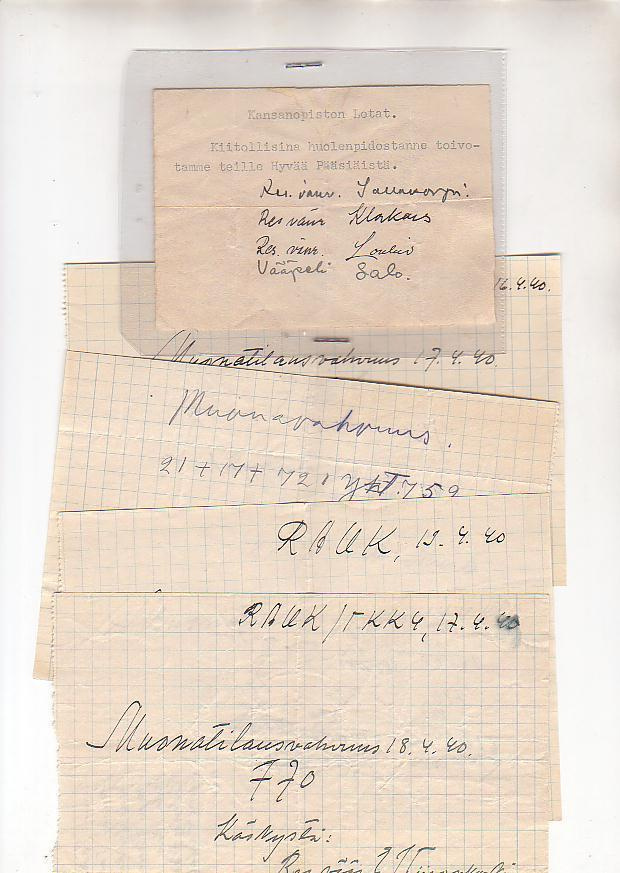 Kansanopiston Lotat.
Kiitollisina huolenpidostanne toivo-
tamme teille Hyvää Pääsiäistä.
Res. vänr.
Res vänr Klokars
Res. vänr.
Vääpeli Salo.
16.4.40.
Muonatilausvahvuus 17.4.40.
Muonavahvuus.
21 + 17 + 721 yht. 759
RAUK, 15.4.40
RAUK/TKK4, 17.4.40
Muonatilausvahvuus 18.4.40.
770
Käskystä: